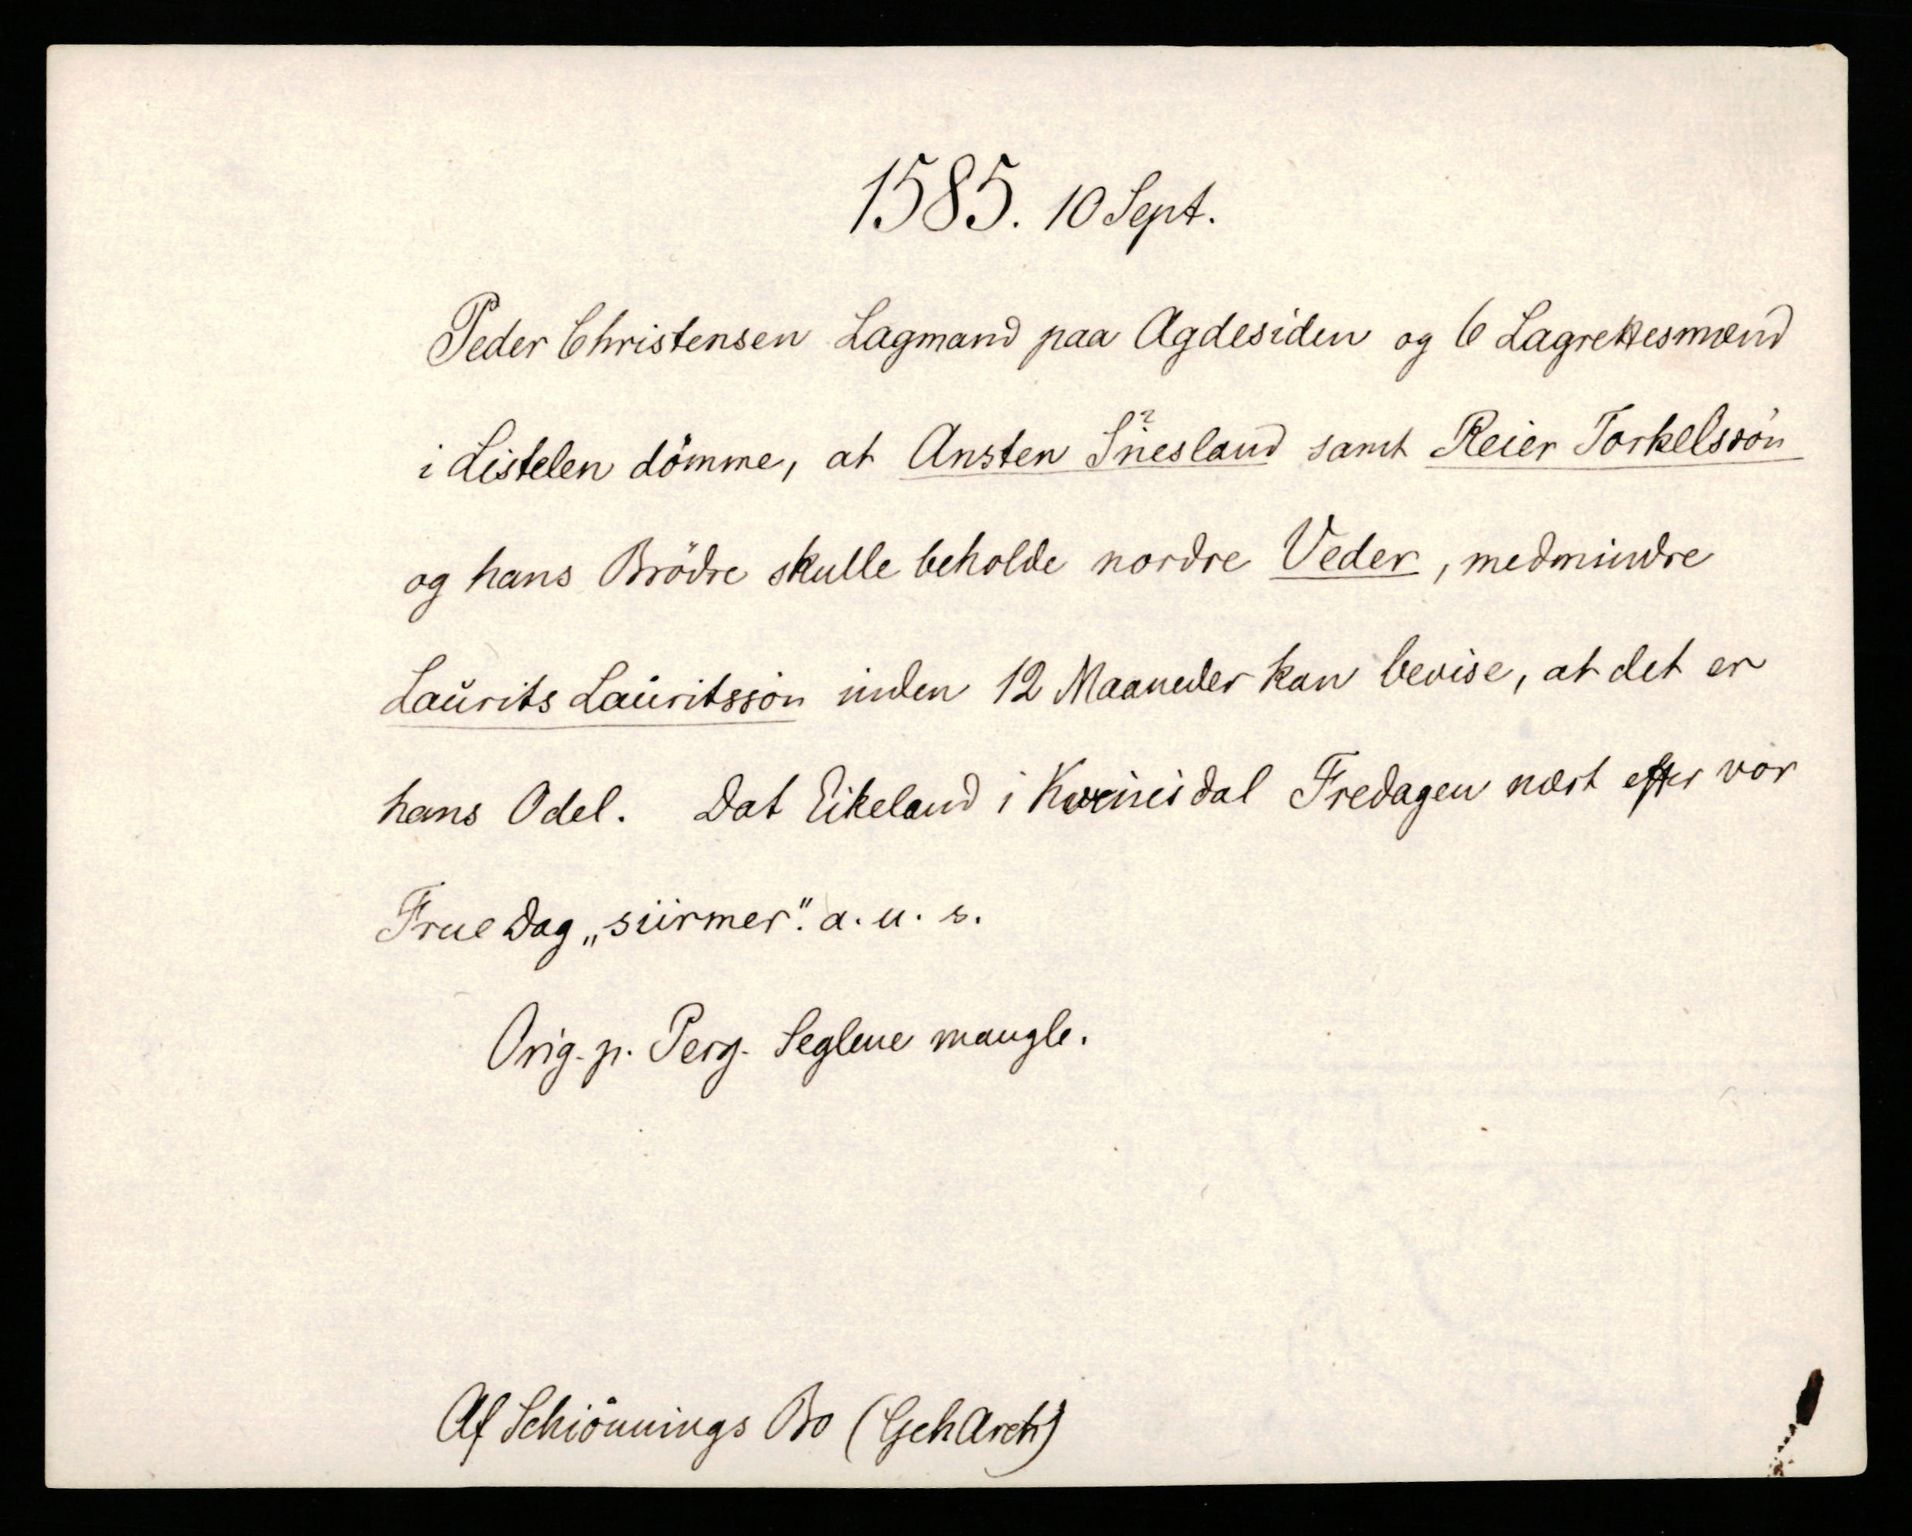 1585. 10 Sept.
Peder Christensen Lagmand paa Agdesiden og 6 Lagrettesmænd
i Listelen dömme, at Ansten Sinesland samt Reier Torkelssön
og hans Brödre skulle beholde nordre Veder, medmindre
Laŭrits Laŭritssön inden 12 Maaneder kan bevise, at det er
hans Odel. Dat Eikeland i Kvinisdal Fredagen næst efter vor
Frue Dag „siirmer". a. u. s.
Orig. p. Perg. Seglene mangle.
Af Schiönnings Bo (GehArch)